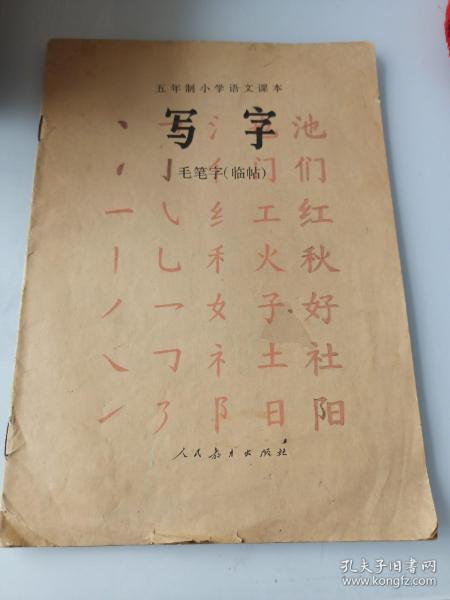 五年制小学语文课本
写字
毛笔字(临帖)
丶 氵 池
亅 亻 门 们
一 乀 纟 工 红
丨 乚 禾 火 秋
丿 乛 女 子 好
㇏ 𠃌 礻 土 社
㇀ 阝 日 阳
人民教育出版社
孔夫子旧书网
www.kongfz.com